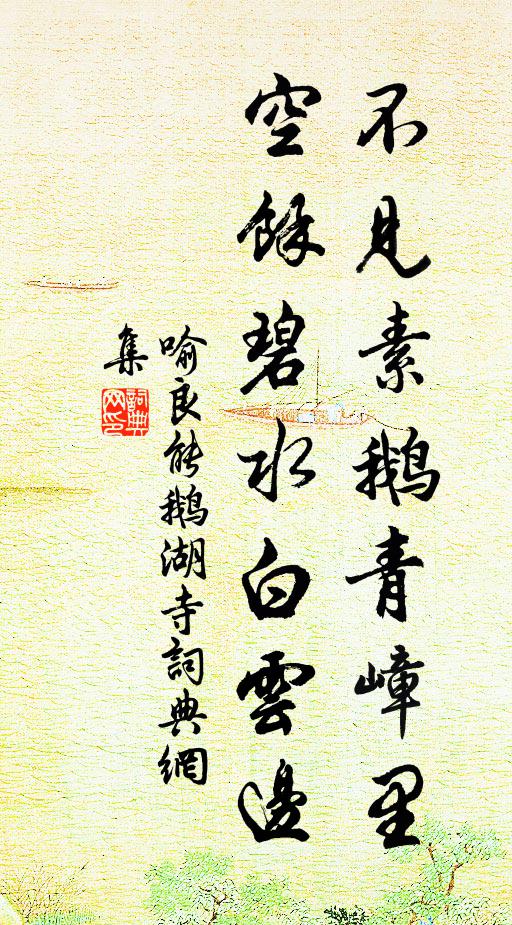 不見素鵝青嶂里
空餘碧水白雲邊
喻良能鵝湖寺詞典網
集
詞典网印